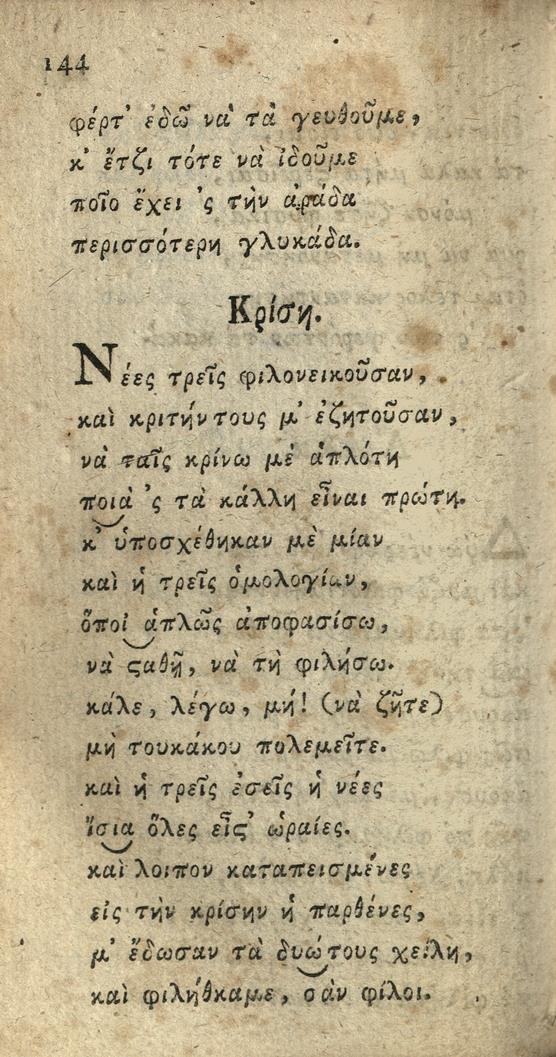 144
φέρτ' ἐδῶ νὰ τὰ γευθοῦμε,
κ' ἔτζι τότε νὰ ἰδοῦμε
ποῖο ἔχει 'ς τὴν ἀράδα
περισσότερη γλυκάδα.
Κρίση.
Νέες τρεῖς φιλονεικοῦσαν,
καὶ κριτήντους μ' ἐζητοῦσαν,
νὰ ταῖς κρίνω μὲ ἁπλότη
ποιὰ 'ς τὰ κάλλη εἶναι πρώτη.
κ' ὑποσχέθηκαν μὲ μίαν
καὶ ἡ τρεῖς ὁμολογίαν,
ὅποὶ ἁπλῶς ἀποφασίσω,
νὰ ςαθῇ, νὰ τὴ φιλήσω.
κάλε, λέγω, μή! (νὰ ζῆτε)
μὴ τουκάκου πολεμεῖτε.
καὶ ἡ τρεῖς ἐσεῖς ἡ νέες
ἴσια ὅλες εἶς' ὡραίες.
καὶ λοιπον καταπεισμένες
εἰς τὴν κρίσην ἡ παρθένες,
μ' ἔδωσαν τὰ δυώτους χείλη,
καὶ φιλήθκαμε, σὰν φίλοι.